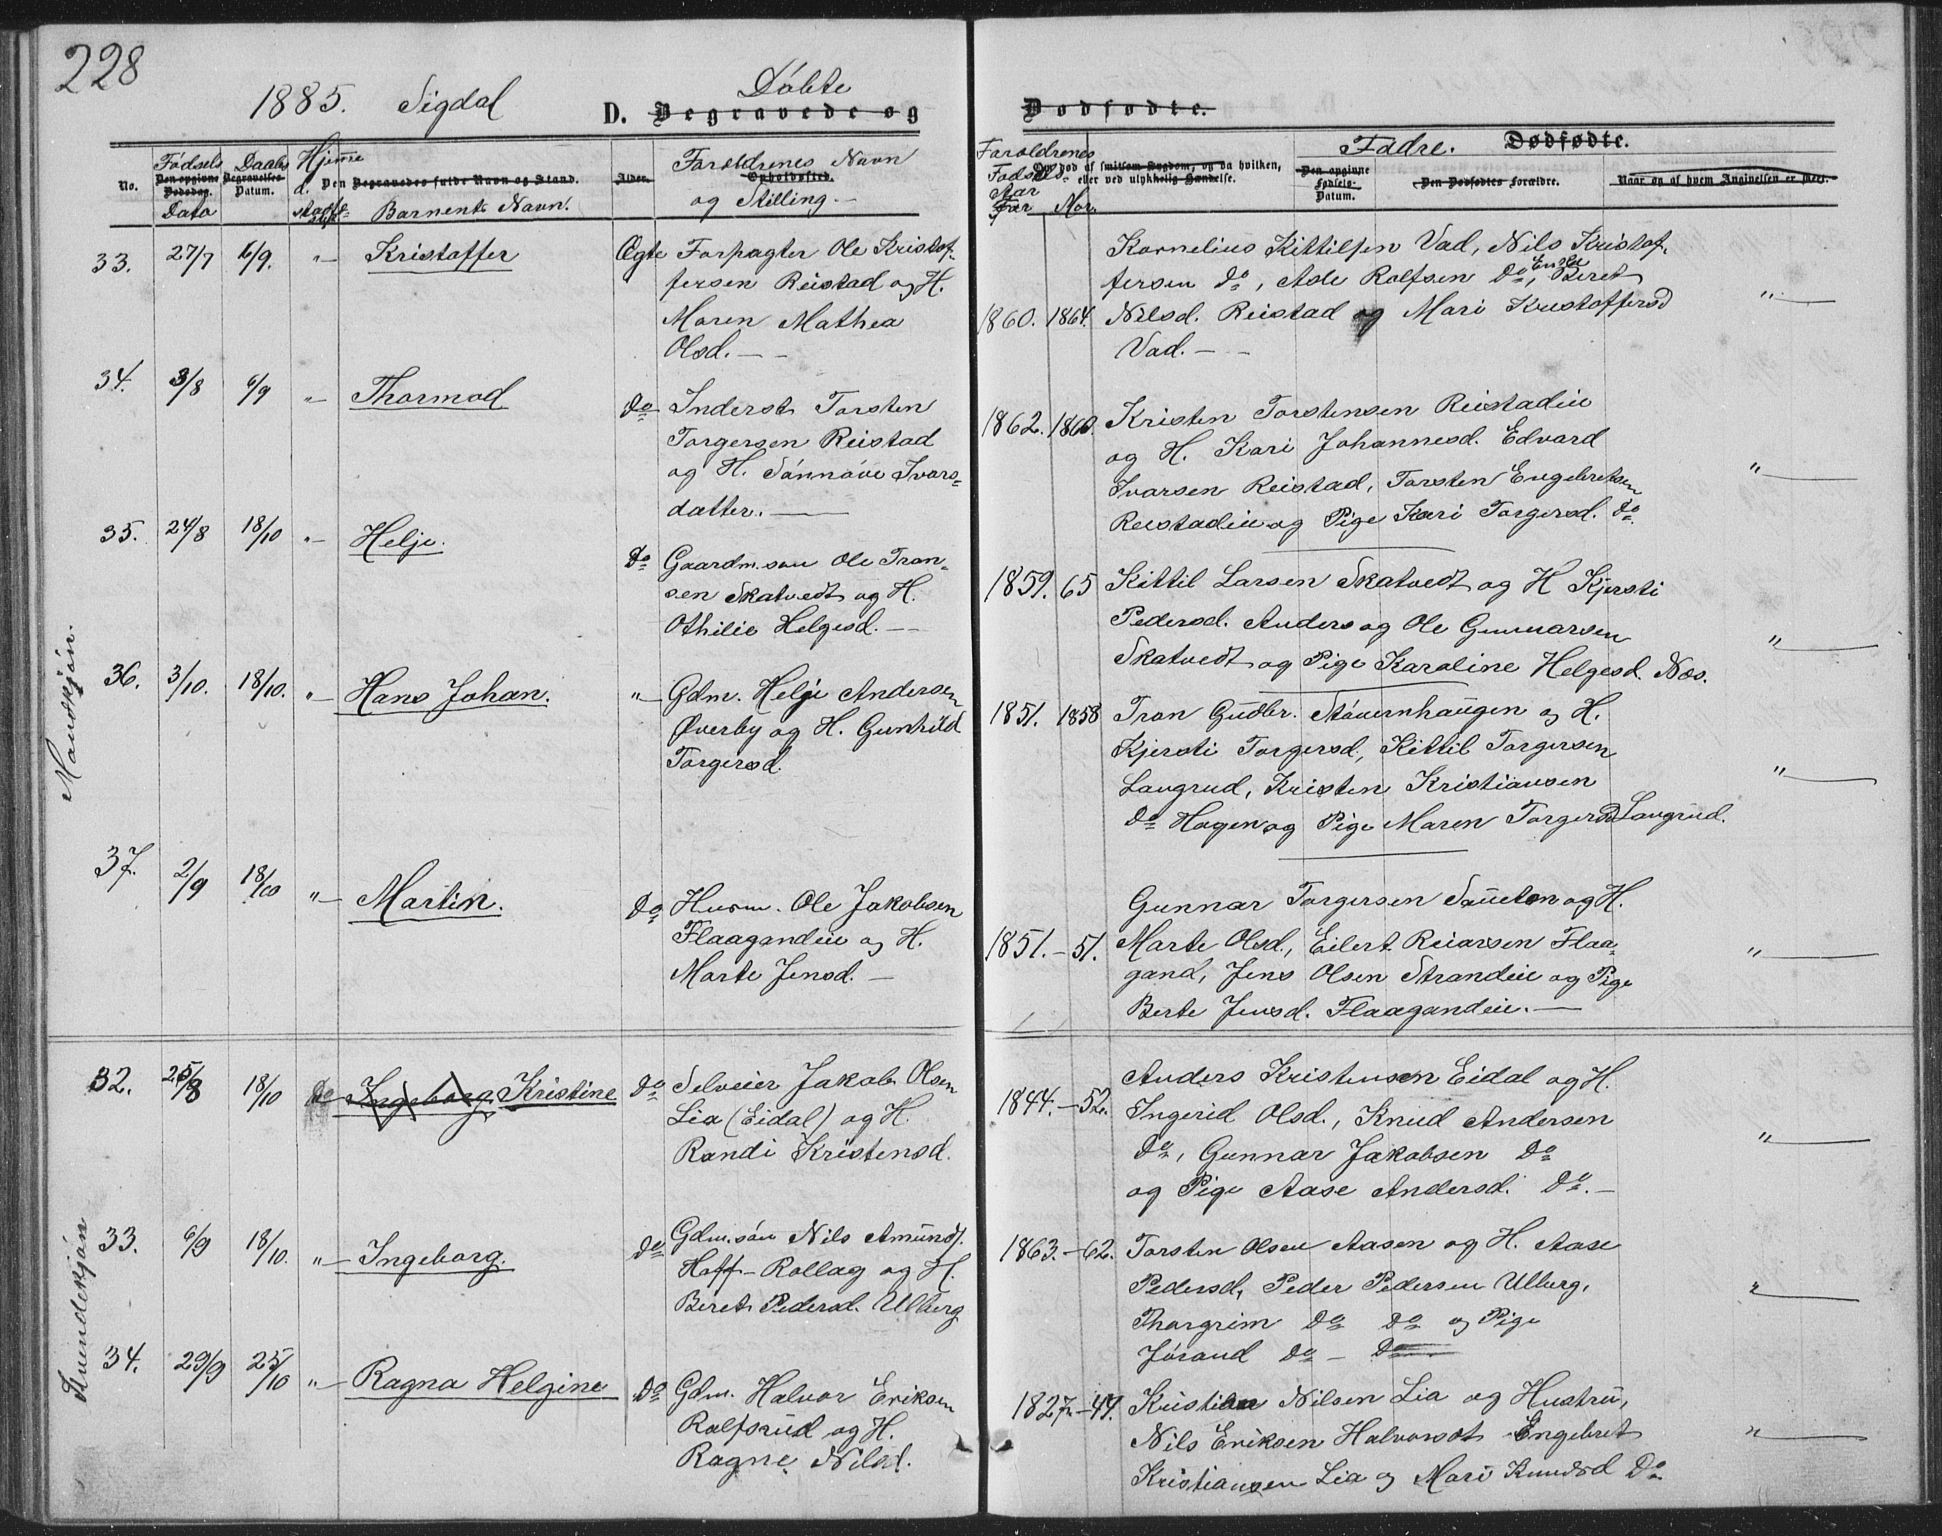 228
1885. Sigdal
Döbte
D. Begravede og
Dødfødte.
No.
Fødsels
Den opgivne
Dødsdag.
Dato
Daabs
Begravelses-
Datum.
Hjemme
d.
Den Begravedes fulde Navn og Stand.
Barnents Navn.
Alder.
Forældrenes Navn
Opholdssted.
og Stilling.
Forældrenes
Fødsels
Aar
Far Mor.
Om død af smitsom Sygdom, og da hvilken,
eller ved ulykkelig Hændelse.
Fadre. Dødfødte.
Den opgivne
Fødsels-
Datum.
Den Dødfødtes Forældre.
Naar og af hvem Angivelsen er skeet.
Mandkjön.
33. 27/7 6/9. "- Kristoffer Ægte Forpagter Ole Kristof-
fersen Reistad og H.
Maren Mathea
Olsd. —
1860. 1864.
Kornelius Kittilsen Vad, Nils Kristof-
fersen do, Asle Rolfsen do, Enke Beret
Nilsd. Reistad og Mari Kristoffersd
Vad. — "—
34. 3/8 6/9 "- Thormod do Inderst Torsten
Torgersen Reistad
og H. Sönnöve Ivars-
datter. —
1862. 1860.
Kristen Torstensen Reistadeie
og H. Kari Johannesd. Edvard
Ivarsen Reistad, Torsten Engebretsen
Reistadeie og Pige Kari Torgersd. do "—
35. 24/8 18/10 "- Helje. do Gaardm.sön Ole Tron-
sen Skatvedt og H.
Othilie Helgesd. —
1859. 65
Kittil Larsen Skatvedt og H Kjersti
Pedersd. Anders og Ole Gunnarsen
Skatvedt og Pige Karoline Helgesd. Næs. "—
36. 3/10. 18/10. "- Hans Johan. "- Gdm. Helje Andersen
Øverby og H. Gunhild
Torgersd.
1851. 1858
Tron Gudbr. Stövernhaugen og H.
Kjersti Torgersd, Kittil Torgersen
Laugrud, Kristen Kristiansen
do Hagen og Pige Maren Torgersd Laugrud. "—
37. 2/9 18/10 "- Martin. do Husm. Ole Jakobsen
Flaagandeie og H.
Marte Jensd. —
1851. - 51.
Gunnar Torgersen og H.
Marte Olsd., Eilert Reiarsen Flaa-
gand, Jens Olsen Strandeie og Pige
Berte Jensd. Flaagandeie. — "—
Kvindekjön
32. 25/8 18/10 do Ingeborg Kristine do Selveier Jakob Olsen
Lia (Eidal) og H.
Randi Kristensd.
1844. - 52.
Anders Kristensen Eidal og H.
Ingerid Olsd., Knud Andersen
do, Gunnar Jakobsen do
og Pige Aase Andersd. do. — "—
33. 6/9 18/10. "- Ingeborg. do Gdm.sön Nils Amundf.
Hoff - Rollag og H.
Beret Pedersd. Ulberg
1863. - 62.
Torsten Olsen Aasen og H. Aase
Pedersd, Peder Pedersen Ulberg,
Thorgrim do do og Pige
Jörand do - do "—
34. 29/9 25/10 "- Ragna Helgine do Gdm. Halvor Eriksen
Rolfsrud og H.
Ragne Nilsd.
1827 - 44.
Kristian Nilsen Lia og Hustru,
Nils Eriksen Engebret
Kristiansen Lia og Mari Knudsd do "—